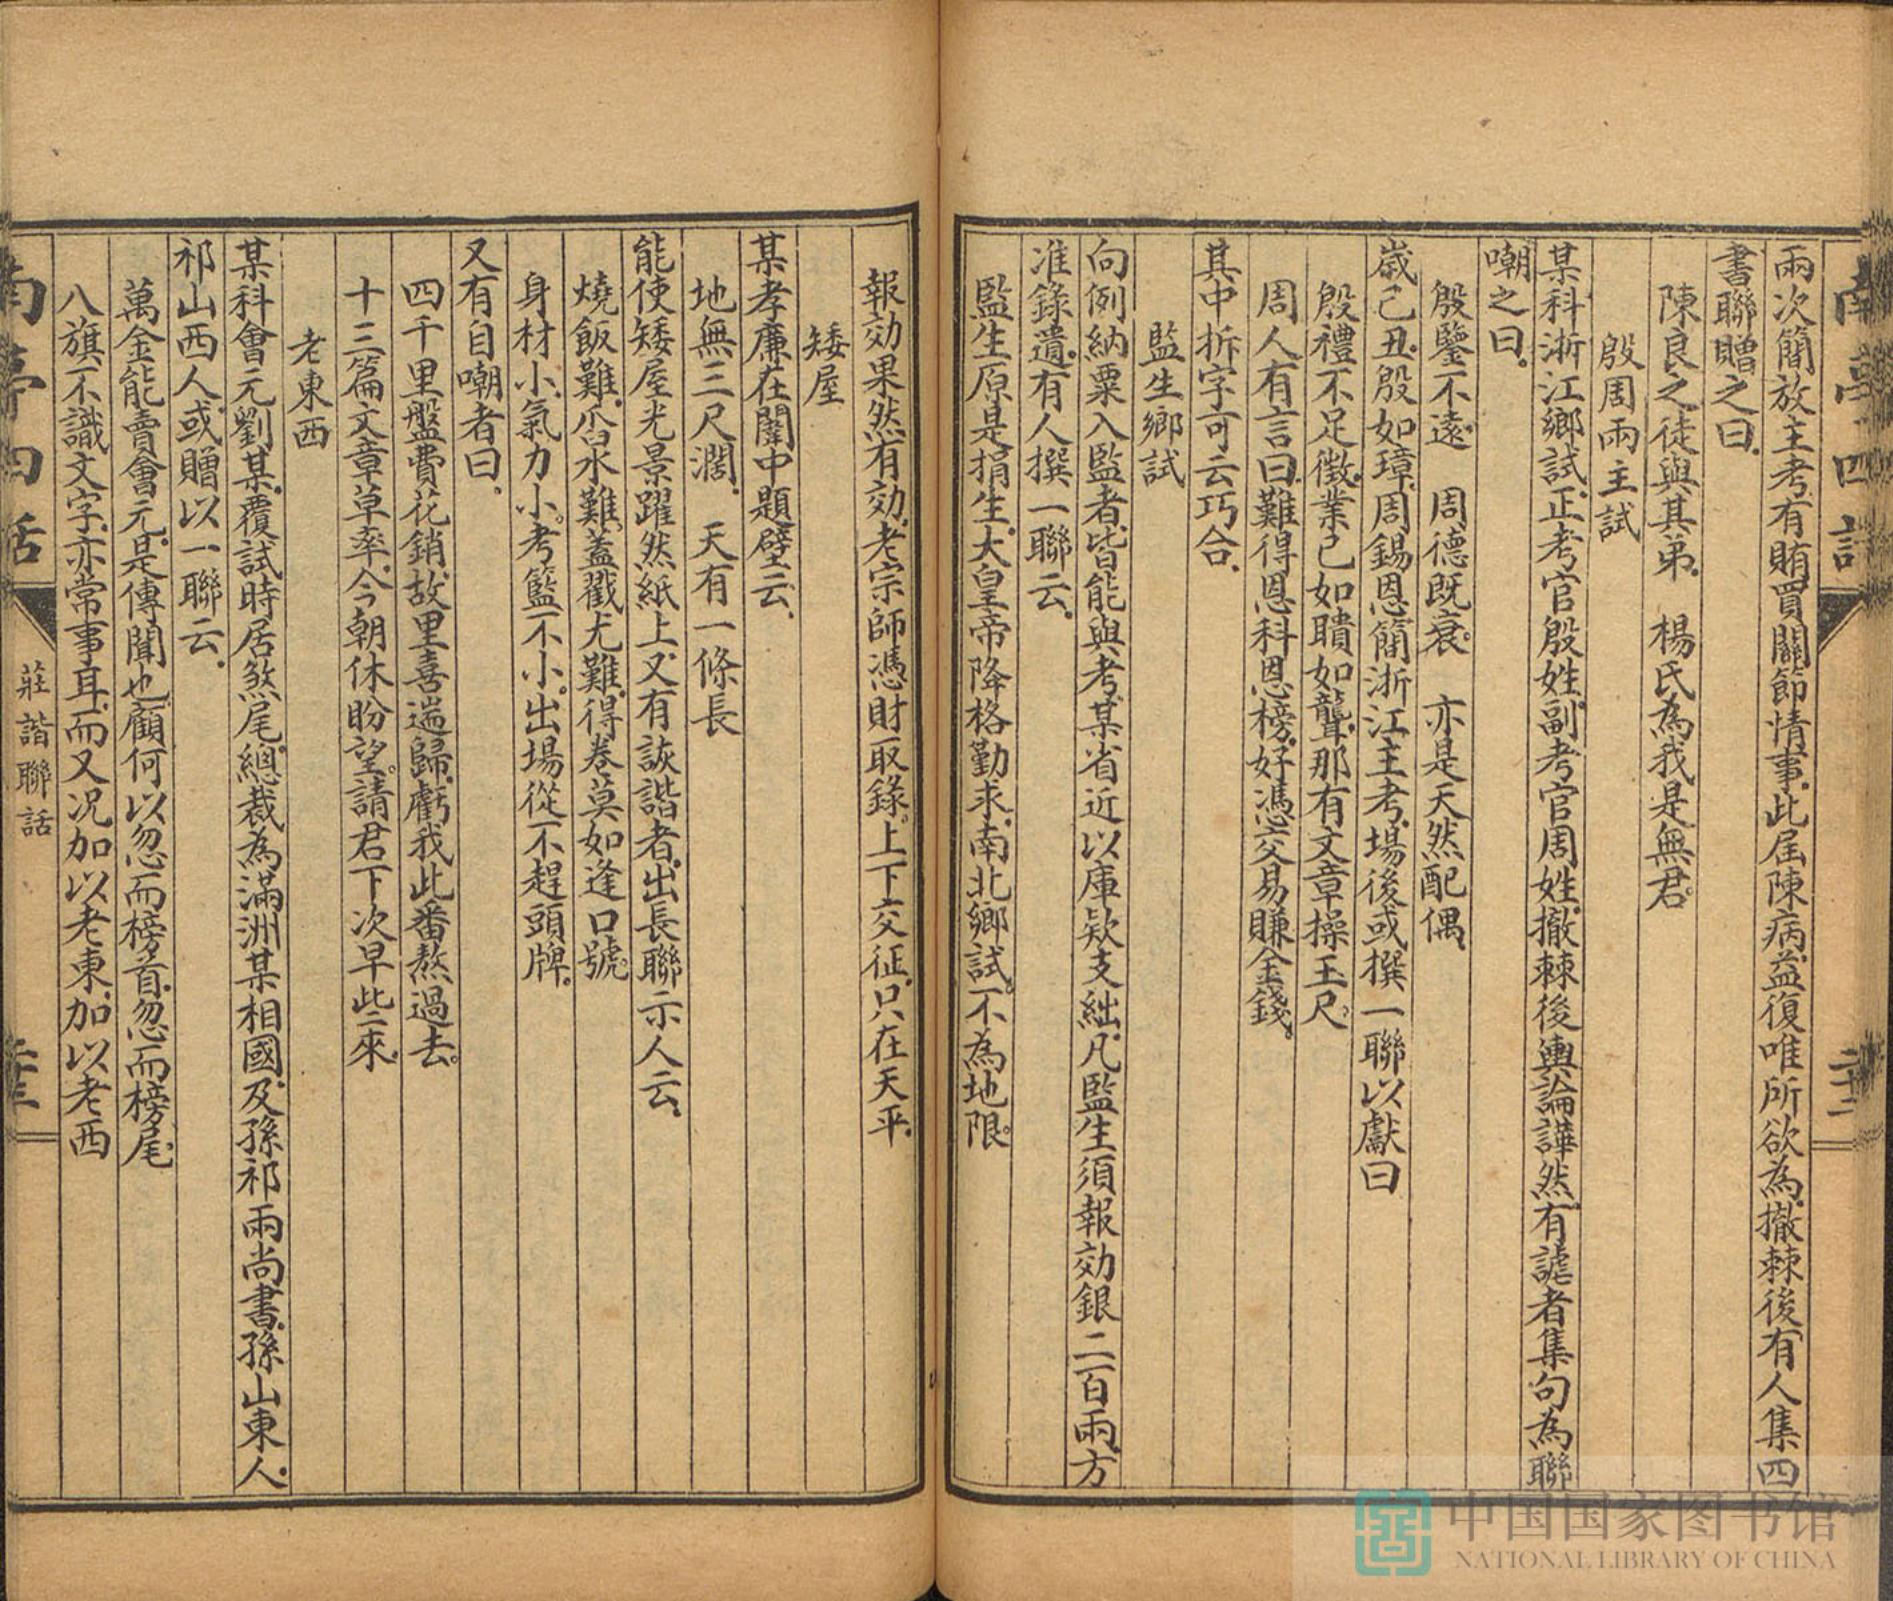 南亭四話
二十二
兩次簡放主考有賄買關節情事此屆陳病益復唯所欲為撤棘後有人集四
書聯贈之曰
陳良之徒與其弟 楊氏為我是無君
殷周兩主試
某科浙江鄉試正考官殷姓副考官周姓撤棘後輿論譁然有謔者集句為聯
嘲之曰
殷鑒不遠 周德既衰 亦是天然配偶
歲己丑殷如璋周錫恩簡浙江主考場後或撰一聯以獻曰
殷禮不足徵業已如瞶如聾那有文章操玉尺
周人有言曰難得恩科恩榜好憑交易賺金錢
其中拆字可云巧合
監生鄉試
向例納粟入監者皆能與考某省近以庫欵支絀凡監生須報効銀二百兩方
准錄遺有人撰一聯云
監生原是捐生大皇帝降格勤求南北鄉試不為地限
報効果然有効老宗師憑財取錄上下交征只在天平
矮屋
某孝廉在闈中題壁云
地無三尺濶 天有一條長
能使矮屋光景躍然紙上又有詼諧者出長聯示人云
燒飯難舀水難蓋戳尤難得卷莫如逢口號
身材小氣力小考籃不小出場從不趕頭牌
又有自嘲者曰
四千里盤費花銷故里喜遄歸虧我此番熬過去
十三篇文章草率今朝休盼望請君下次早些來
老東西
某科會元劉某覆試時居煞尾總裁為滿洲某相國及孫祁兩尚書孫山東人
祁山西人或贈以一聯云
萬金能賣會元是傳聞也顧何以忽而榜首忽而榜尾
八旗不識文字亦常事耳而又況加以老東加以老西
南亭四話
莊諧聯話
中国国家图书馆
NATIONAL LIBRARY OF CHINA